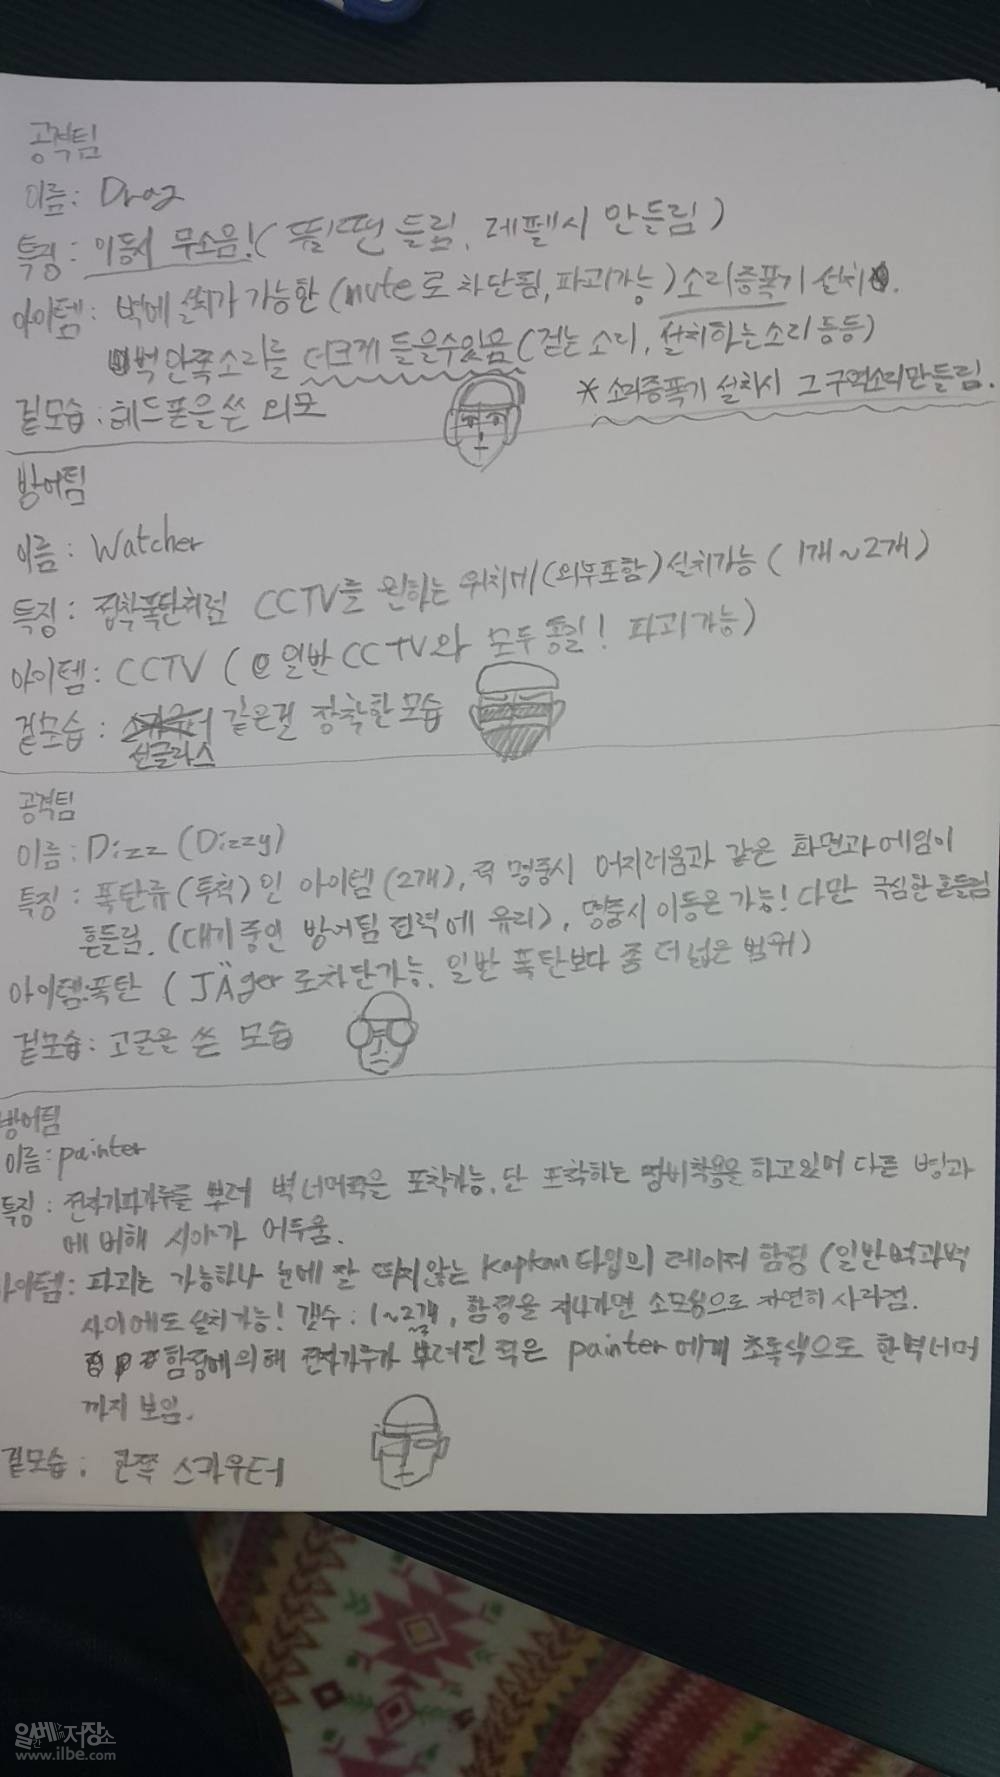 공격팀
이름: Drag
특징: 이동시 무소음! (뛸땐 들림, 레펠시 안들림)
아이템: 벽에 설치가 가능한 (mute로 차단됨, 파괴가능) 소리증폭기 설치.
벽 안쪽소리를 더크게 들을수있음 (걷는 소리, 설치하는소리 등등)
* 소리증폭기 설치시 그구역소리만들림.
겉모습: 헤드폰을 쓴 외모
방어팀
이름: Watcher
특징: 접착폭탄처럼 CCTV를 원하는 위치에 (외부포함) 설치가능 (1개~2개)
아이템: CCTV (일반 CCTV와 모두 동일! 파괴가능)
겉모습: 선글라스 같은걸 장착한 모습
공격팀
이름: Dizz (Dizzy)
특징: 폭탄류 (투척)인 아이템 (2개), 적 명중시 어지러움과 같은 화면과 에임이
흔들림. (대기중인 방어팀 전력에 유리), 명중시 이동은 가능! 다만 극심한 흔들림
아이템: 폭탄 (JÄger로 차단가능, 일반 폭탄보다 좀 더 넓은 범위)
겉모습: 고글을 쓴 모습
방어팀
이름: painter
특징: 전자기파가루를 뿌려 벽 너머적을 포착가능, 단 포착하는 장비착용을 하고있어 다른 병과
에 비해 시야가 어두움.
아이템: 파괴는 가능하나 눈에 잘 띄지않는 kapkan타입의 레이저 함정 (일반벽과벽
사이에도 설치가능! 갯수: 1~2개, 함정을 지나가면 소모성으로 자연히 사라짐.
함정에의해 전자가루가 뿌려진 적은 painter에게 초록색으로 한벽너머
까지 보임.
겉모습: 한쪽 스카우터
일베저장소
www.ilbe.com